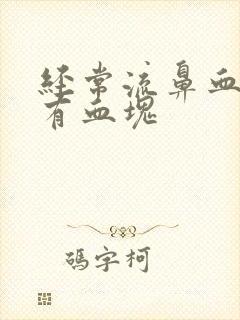 經常流鼻血
有血塊
碼字柯